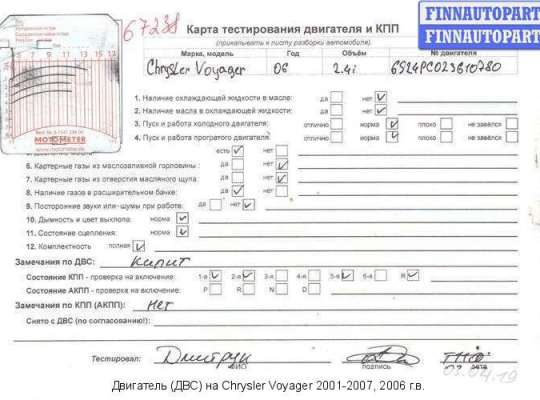 67238
Карта тестирования двигателя и КПП
(прикалывать к листу разборки автомобиля)
FINNAUTOPART
FINNAUTOPART
Марка, модель Год Объём № двигателя
Chrysler Voyager 06 2.4i
1. Наличие охлаждающей жидкости в масле: да нет
2. Наличие масла в охлаждающей жидкости: да нет
3. Пуск и работа холодного двигателя: отлично норма плохо не завёлся
4. Пуск и работа прогретого двигателя: отлично норма плохо не завёлся
MOTOMETER
www.motometer.de
есть нет
6. Картерные газы из маслозаливной горловины : да нет
7. Картерные газы из отверстия масляного щупа: да нет
8. Наличие газов в расширительном бачке: да нет
9. Посторонние звуки или шумы при работе: да нет
10. Дымность и цвет выхлопа: норма
11. Состояние сцепления: норма
12. Комплектность полная
Замечания по ДВС: Кипит
Состояние КПП - проверка на включение: 1-я 2-я 3-я 4-я 5-я 6-я R
Состояние АКПП - проверка на включение: P R N D
Замечания по КПП (АКПП): Нет
Снято с ДВС (по согласованию):
Тестировал: Дмитрук
ФИО подпись дата
03.04.19
Двигатель (ДВС) на Chrysler Voyager 2001-2007, 2006 г.в.